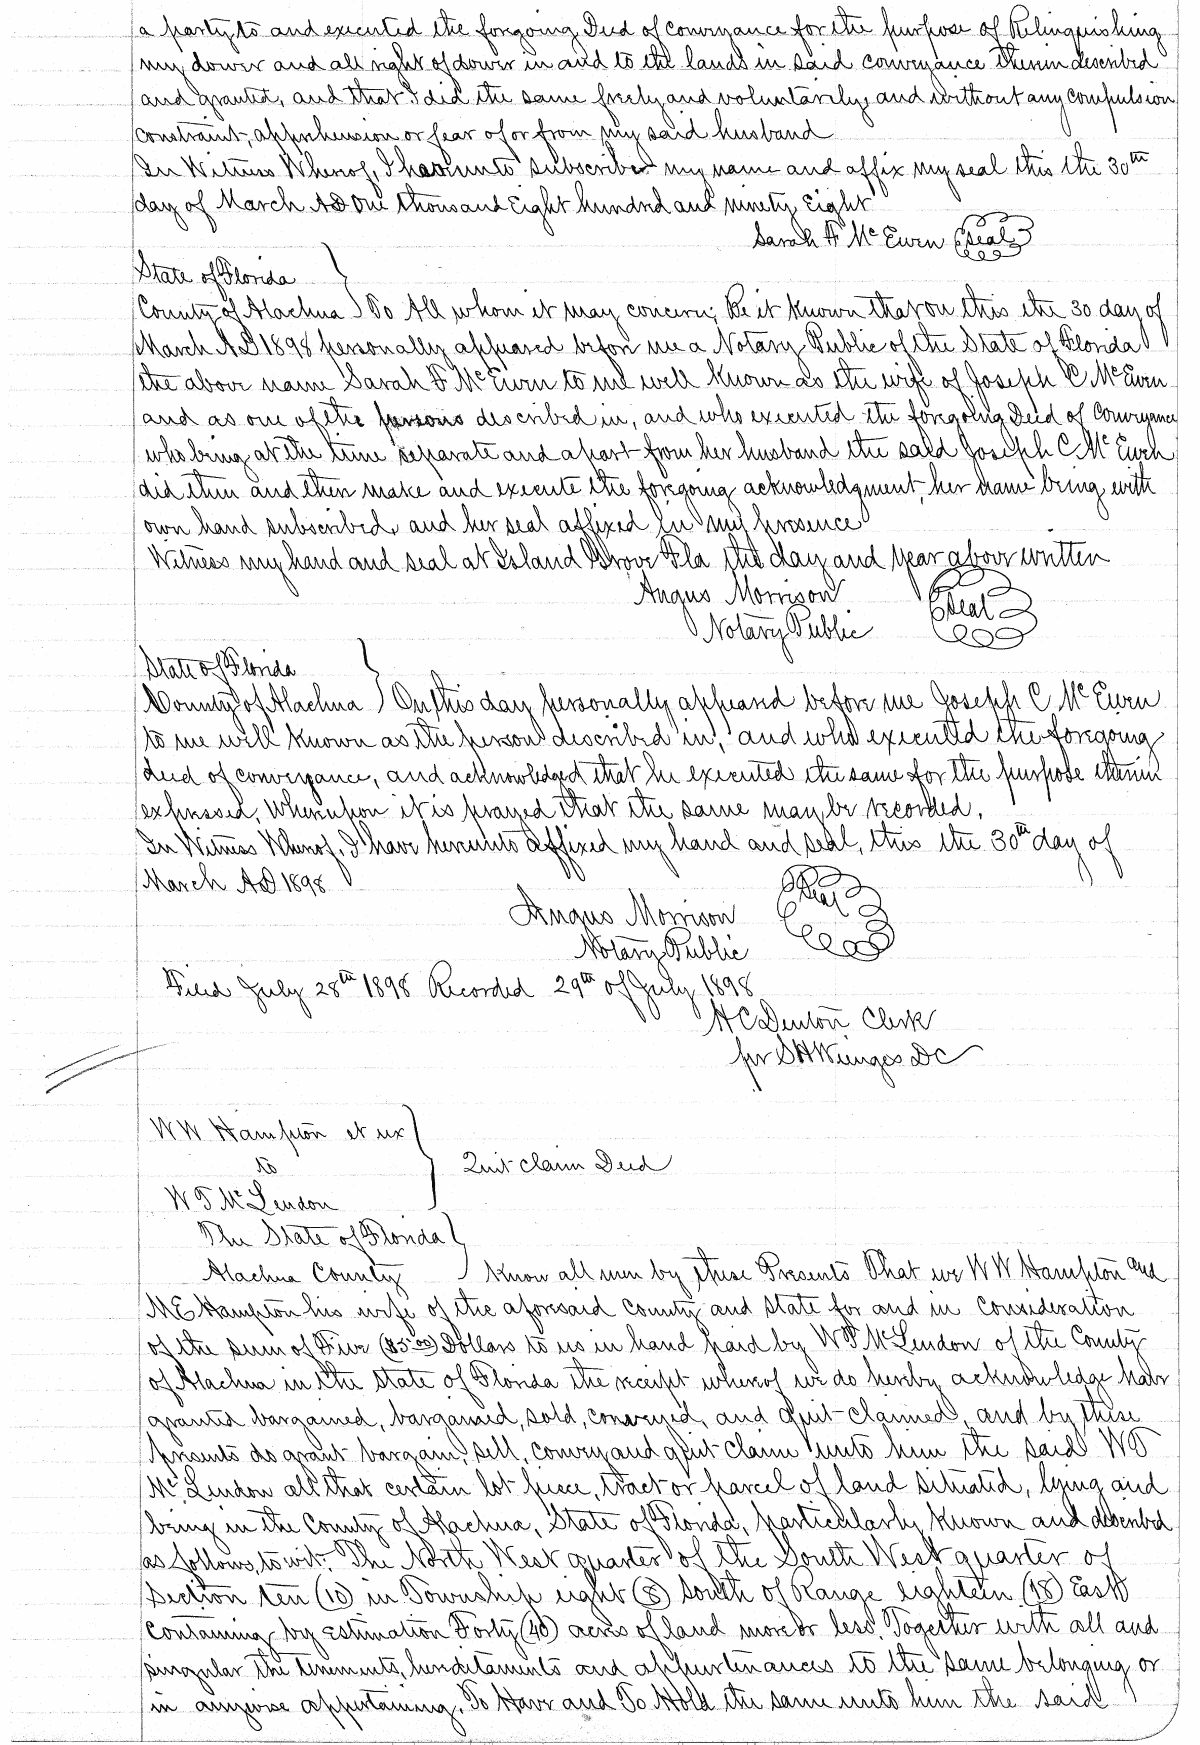 a party to and executed the foregoing Deed of conveyance for the purpose of Relinquishing
my dower and all right of dower in and to the lands in said conveyance therein described
and granted, and that I did the same freely and voluntarily, and without any compulsion
constraint, apprehension or fear of or from my said husband
In Witness Whereof, I hereunto subscribe my name and affix my seal this the 30th
day of March AD One thousand Eight hundred and ninety Eight
Sarah F McEwen Seal
State of Florida
County of Alachua } To All whom it may concern; Be it known that on this the 30 day of
March AD 1898 personally appeared before me a Notary Public of the State of Florida
the above name Sarah F McEwen to me well known as the wife of Joseph C McEwen
and as one of the persons described in, and who executed the foregoing Deed of Conveyance
who being at the time separate and apart from her husband the said Joseph C McEwen
did then and then make and execute the foregoing acknowledgment, her name being with
own hand subscribed, and her seal affixed in my presence
Witness my hand and seal at Island Grove Fla the day and year above written
Angus Morrison Seal
Notary Public
State of Florida
County of Alachua } On this day personally appeared before me Joseph C McEwen
to me well known as the person described in, and who executed the foregoing
deed of conveyance, and acknowledged that he executed the same for the purpose therein
expressed, Whereupon it is prayed that the same may be recorded.
In Witness Whereof, I have hereunto affixed my hand and seal, this the 30th day of
March AD 1898
Angus Morrison Seal
Notary Public
Filed July 28th 1898 Recorded 29th of July 1898
H C Denton Clerk
per S H Wienges DC
W W Hampton et ux
to
Quit claim Deed
W T McLendon
The State of Florida
Alachua County } Know all men by these Presents That we W W Hampton and
M E Hampton his wife of the aforesaid County and State for and in consideration
of the sum of Five ($5.00) Dollars to us in hand paid by W T McLendon of the County
of Alachua in the State of Florida the receipt whereof we do hereby acknowledge have
granted bargained, bargained, sold, conveyed, and quit-claimed, and by these
presents do grant bargain, sell, convey and quit claim unto him the said W T
McLendon all that certain lot piece, tract or parcel of land situated, lying and
being in the County of Alachua, State of Florida, particularly known and described
as follows, to wit: The North West quarter of the South West quarter of
Section ten (10) in Township eight (8) South of Range eighteen (18) East
Containing by estimation Forty (40) acres of land more or less. Together with all and
singular the tenements, hereditaments and appurtenances to the same belonging or
in anywise appertaining. To Have and To Hold the same unto him the said